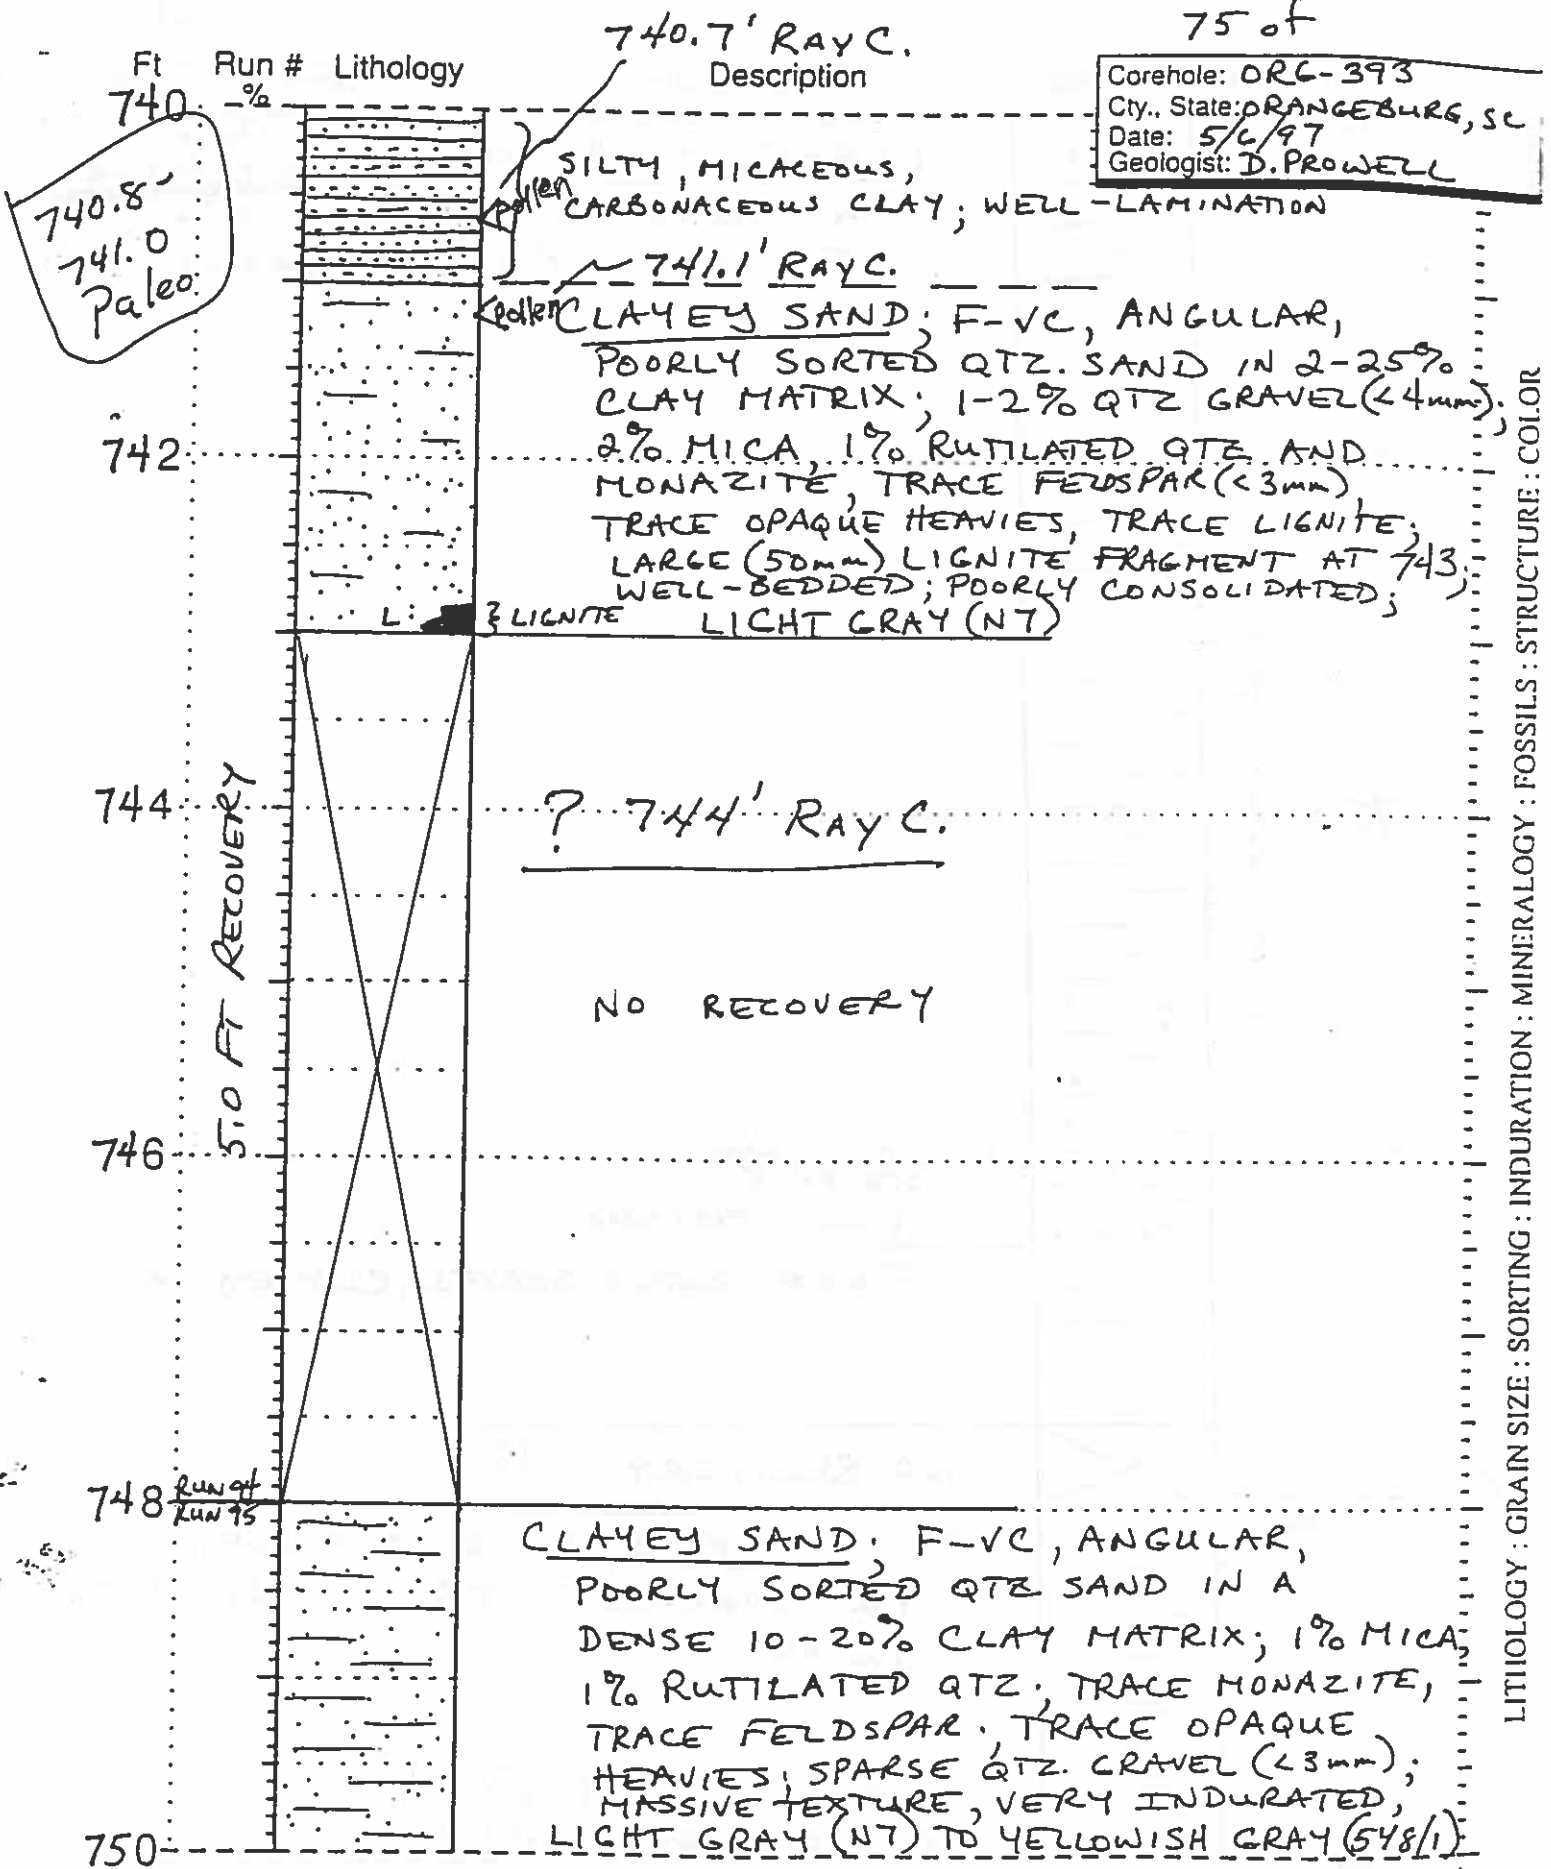 75 of
740.7' RAY C.
Ft Run # Lithology Description
-%
Corehole: ORG-393
Cty., State: ORANGEBURG, SC
Date: 5/6/97
Geologist: D. PROWELL
740
740.8'
741.0
Paleo
SILTY, MICACEOUS,
pollen
CARBONACEOUS CLAY; WELL-LAMINATION
741.1' RAY C.
pollen
CLAYEY SAND; F-VC, ANGULAR,
POORLY SORTED QTZ. SAND IN 2-25%
CLAY MATRIX; 1-2% QTZ GRAVEL (<4mm);
742
2% MICA, 1% RUTILATED QTZ AND
MONAZITE, TRACE FELDSPAR (<3mm),
TRACE OPAQUE HEAVIES, TRACE LIGNITE;
LARGE (50mm) LIGNITE FRAGMENT AT 743;
WELL-BEDDED; POORLY CONSOLIDATED;
L LIGNITE LIGHT GRAY (N7)
744
? 744' RAY C.
5.0 FT RECOVERY
NO RECOVERY
746
748
RUN 94
RUN 95
CLAYEY SAND; F-VC, ANGULAR,
POORLY SORTED QTZ SAND IN A
DENSE 10-20% CLAY MATRIX; 1% MICA,
1% RUTILATED QTZ., TRACE MONAZITE,
TRACE FELDSPAR, TRACE OPAQUE
HEAVIES; SPARSE QTZ. GRAVEL (<3mm);
MASSIVE TEXTURE, VERY INDURATED,
LIGHT GRAY (N7) TO YELLOWISH GRAY (5Y8/1)
750
LITHOLOGY : GRAIN SIZE : SORTING : INDURATION : MINERALOGY : FOSSILS : STRUCTURE : COLOR